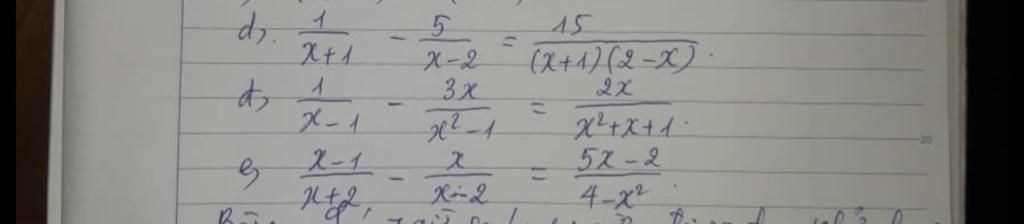 d). 1/(x+1) - 5/(x-2) = 15/((x+1)(2-x)).
đ) 1/(x-1) - 3x/(x²-1) = 2x/(x²+x+1).
e) (x-1)/(x+2) - x/(x-2) = (5x-2)/(4-x²).
20